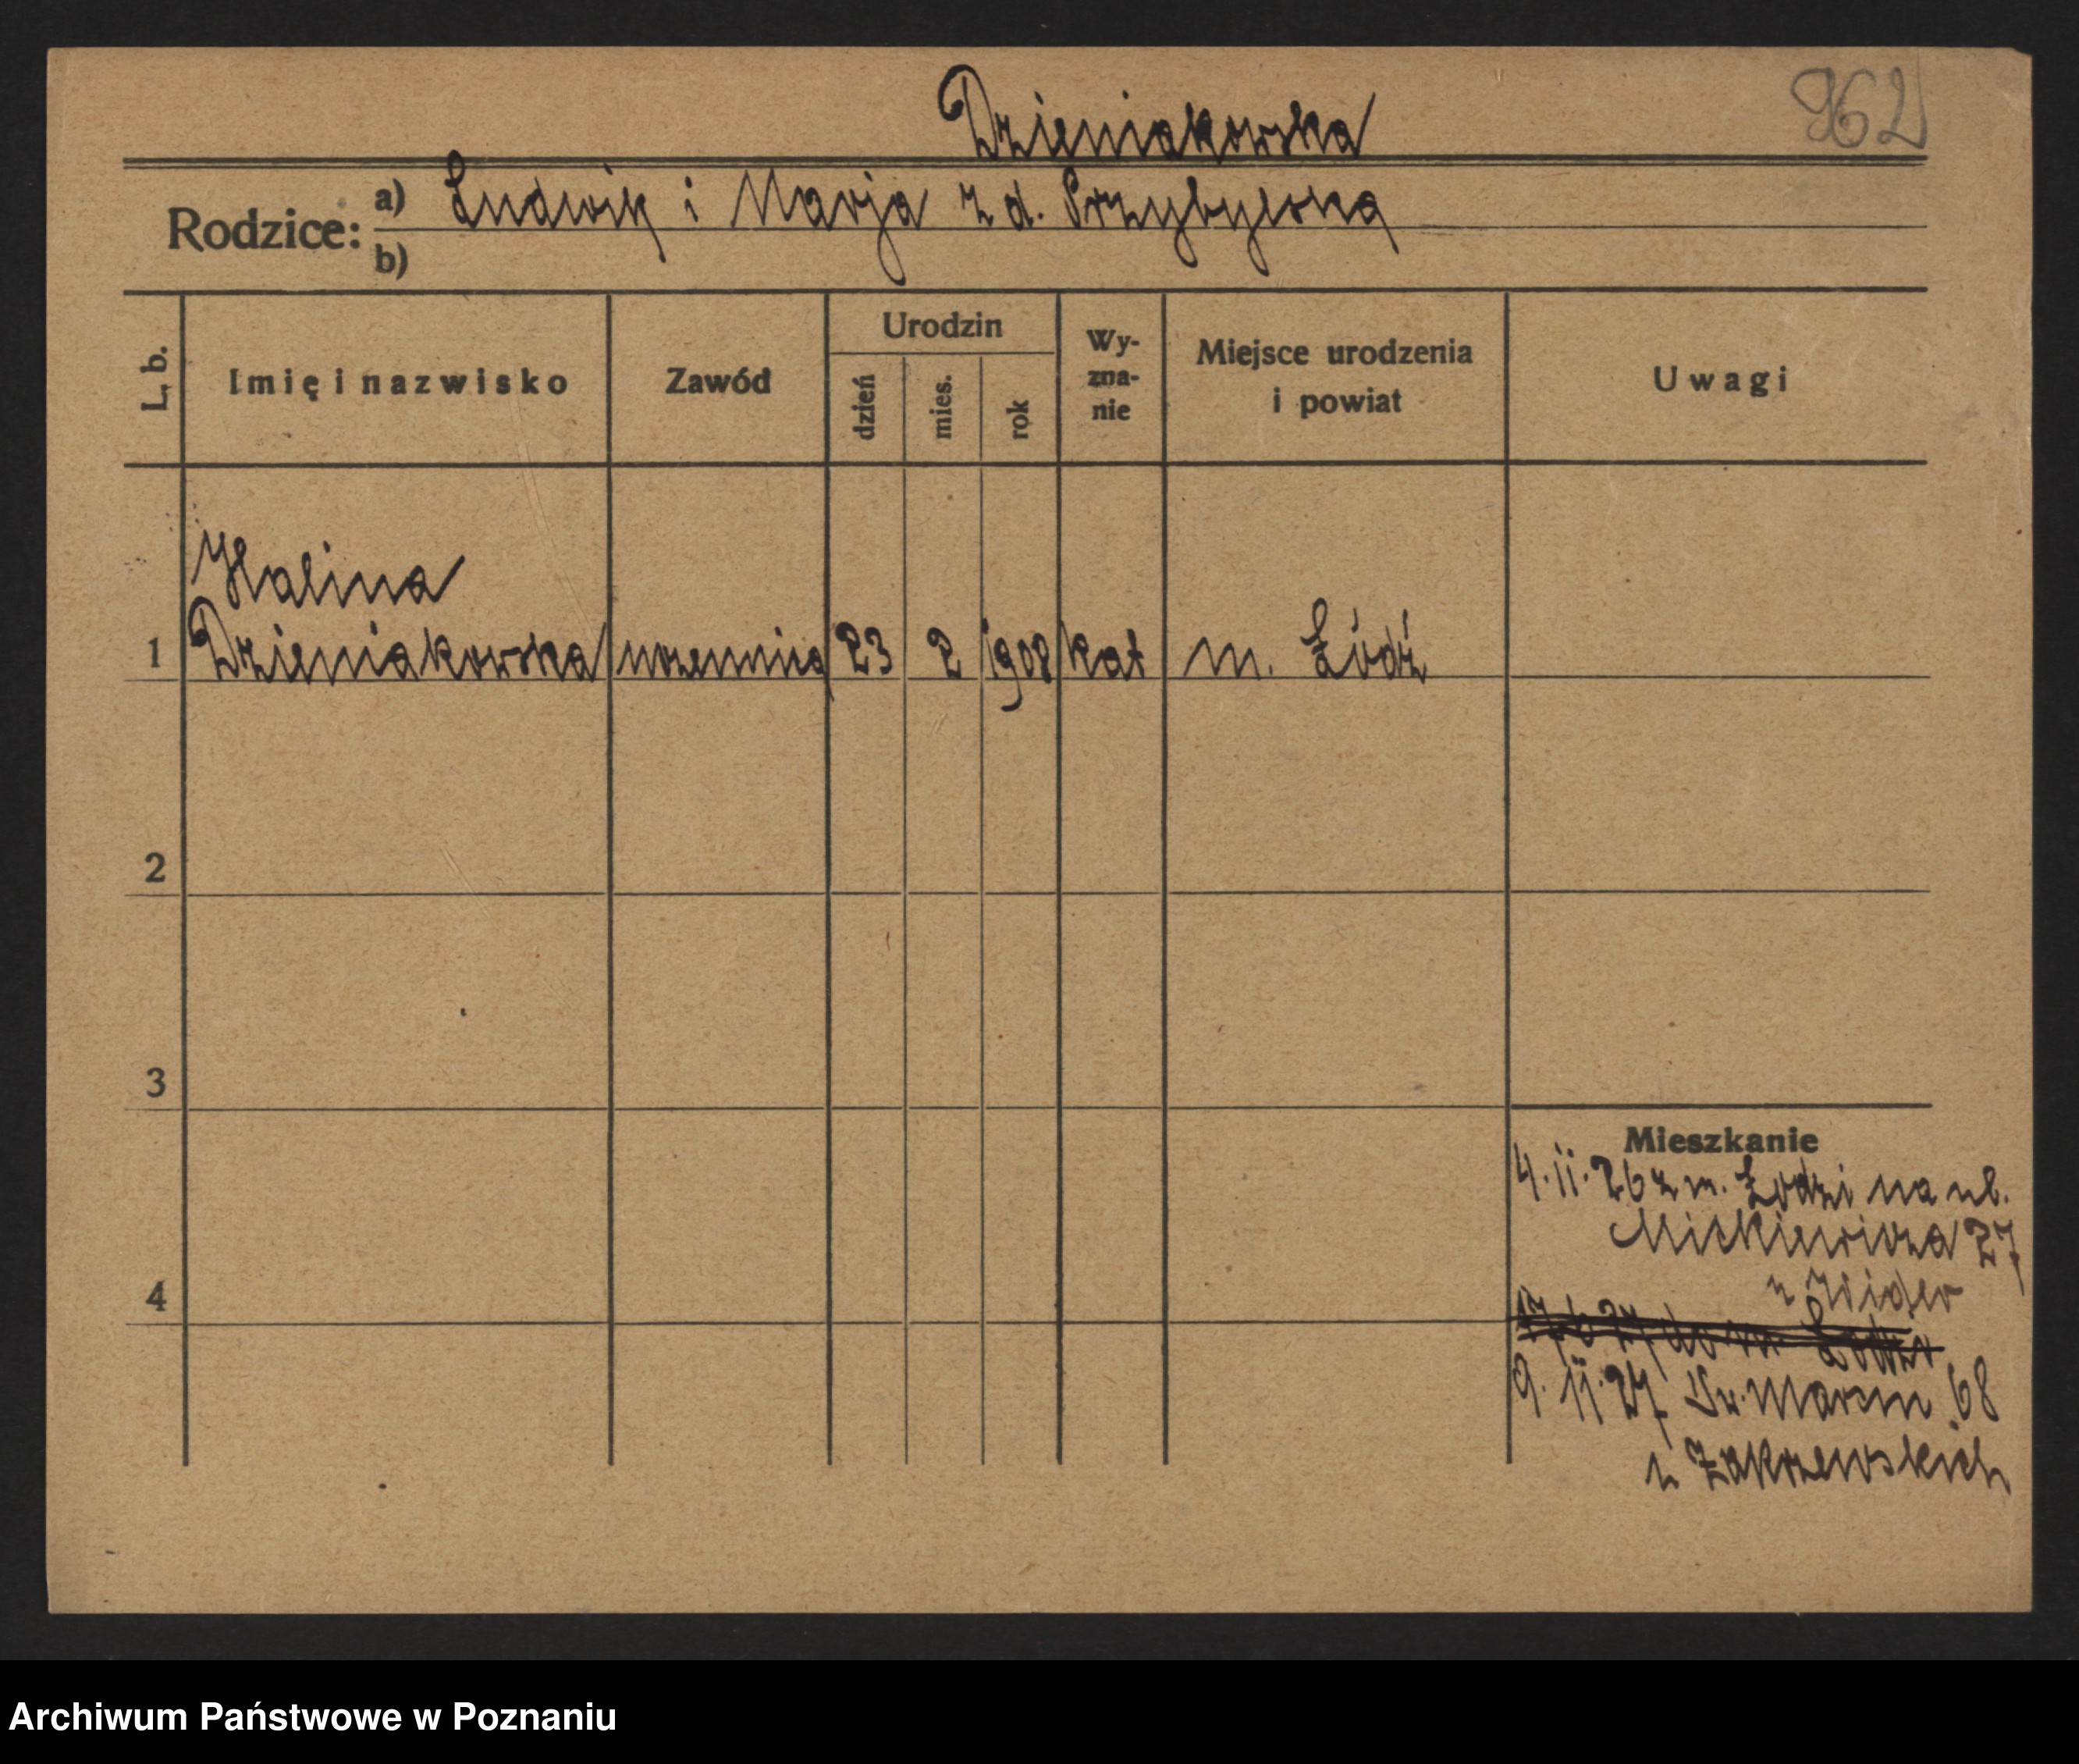 962
Dzieniakowska
Rodzice: a) Ludwik i Marja z d. Przybylska
b)
L. b.
Imię i nazwisko
Zawód
Urodzin
dzień
mies.
rok
Wy-
zna-
nie
Miejsce urodzenia
i powiat
Uwagi
Halina
1 Dzieniakowska uczennica 23 2 1908 kat m. Łódź
2
3
4
Mieszkanie
4.11.26 z m. Łodzi na ul.
Mickiewicza 27
u
17 6 27 do m. Łodzi
9.11.27 Św. Marcin 68
u Zakrzewskich
Archiwum Państwowe w Poznaniu